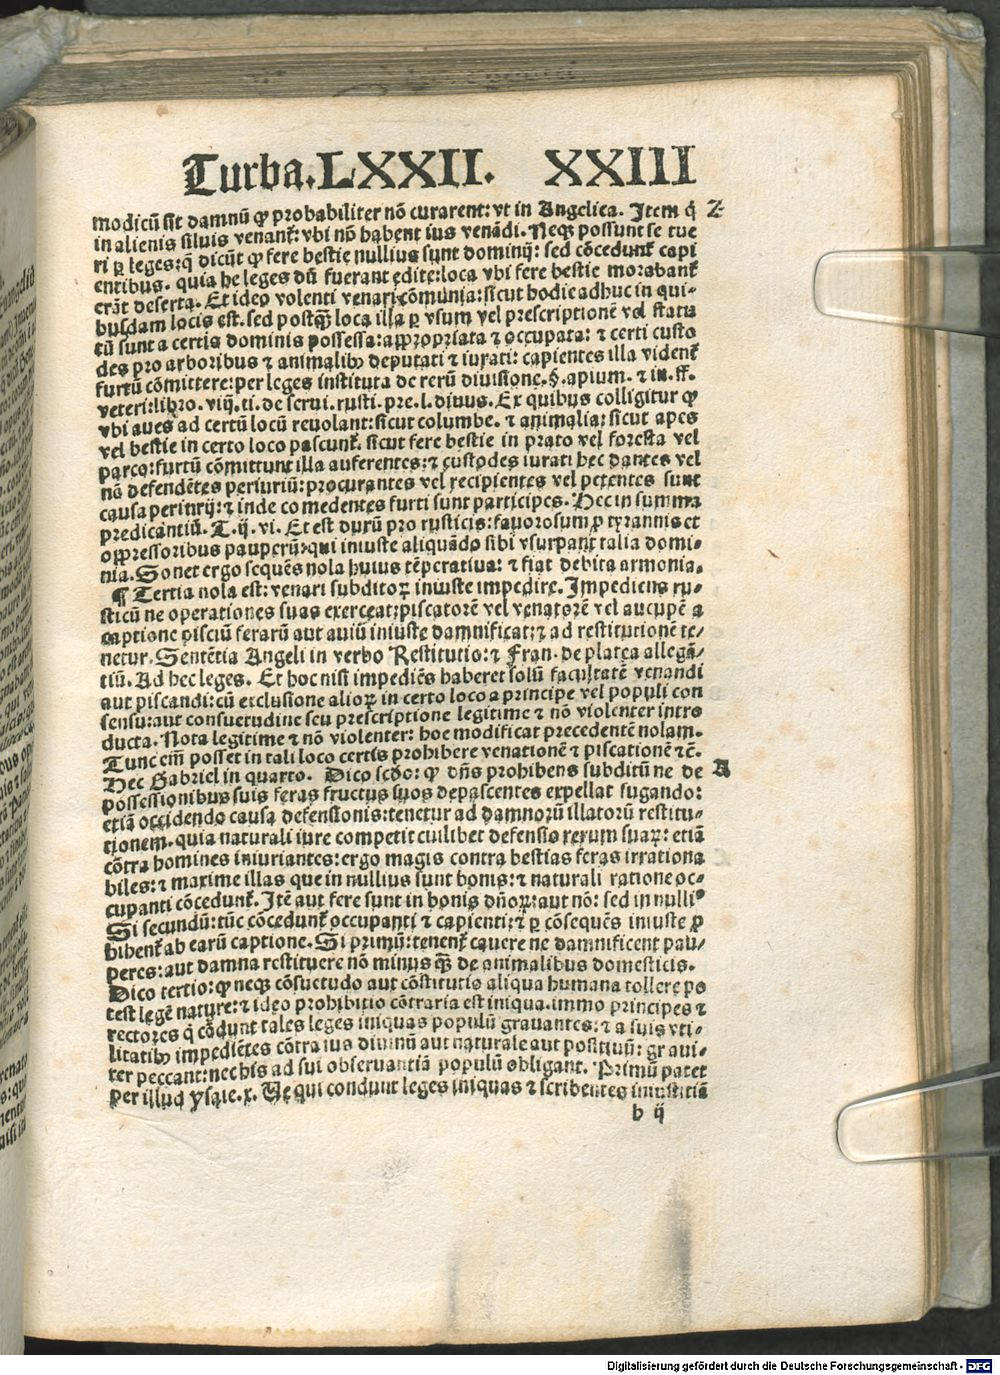 Turba.LXXII. XXIII
modicũ sit damnũ ꝙ probabiliter nõ curarent: vt in Angelica. Item q̃ Z
in alienis siluis venant̃: vbi nõ habent ius venãdi. Neqꝫ possunt se tue
ri ꝑ leges: q̃ dicũt ꝙ fere bestie nullius sunt dominij: sed cõcedunt̃ capi
entibus. quia he leges dũ fuerant edite: loca vbi fere bestie morabant̃
erãt deserta. Et ideo volenti venari cõmunia: sicut hodie adhuc in qui⸗
busdam locis est. sed postq̃ loca illa ꝑ vsum vel prescriptionẽ vel statu
tũ sunt a certis dominis possessa: appropriata ⁊ occupata: ⁊ certi custo
des pro arboribus ⁊ animalibꝰ deputati ⁊ iurati: capientes illa vident̃
furtũ cõmittere: per leges instituta de rerũ diuisione. §. apium. ⁊ in .ff.
veteri: libro. viij. ti. de serui. rusti. pre. l. diuus. Ex quibus colligitur ꝙ
vbi aues ad certũ locũ reuolant: sicut columbe. ⁊ animalia: sicut apes
vel bestie in certo loco pascunt̃. sicut fere bestie in prato vel foresta vel
parco: furtũ cõmittunt illa auferentes: ⁊ custodes iurati hec dantes vel
nõ defendẽtes periuriũ: procurantes vel recipientes vel petentes sunt
causa periurij: ⁊ inde comedentes furti sunt participes. Hec in summa
predicantiũ. T. ij. vi. Et est durũ pro rusticis: fauorosum ꝓ tyrannis et
oppressoribus pauperũ: qui iniuste aliquãdo sibi vsurpant talia domi⸗
nia. Sonet ergo sequẽs nola huius tẽperatiua: ⁊ fiat debita armonia.
¶ Tertia nola est: venari subditoꝝ iniuste impedire. Impediens ru⸗
sticũ ne operationes suas exerceat: piscatorẽ vel venatorẽ vel aucupẽ a
captione pisciũ ferarũ aut auiũ iniuste damnificat: ⁊ ad restitutionẽ te⸗
netur. Sentẽtia Angeli in verbo Restitutio: ⁊ Fran. de platea allegã⸗
tiũ. Ad hec leges. Et hoc nisi impediẽs haberet solũ facultatẽ venandi
aut piscandi: cũ exclusione alioꝝ in certo loco a principe vel populi con
sensu: aut consuetudine seu prescriptione legitime ⁊ nõ violenter intro
ducta. Nota legitime ⁊ nõ violenter: hoc modificat precedentẽ nolam.
Tunc em̃ posset in tali loco certis prohibere venationẽ ⁊ piscationẽ ⁊c̃.
Hec Gabriel in quarto. Dico scd̃o: ꝙ dñs prohibens subditũ ne de A
possessionibus suis feras fructus suos depascentes expellat fugando:
etiã occidendo causa defensionis: tenetur ad damnorũ illatorũ restitu⸗
tionem. quia naturali iure competit cuilibet defensio rerum suaꝝ: etiã
cõtra homines iniuriantes: ergo magis contra bestias feras irrationa
biles: ⁊ maxime illas que in nullius sunt bonis: ⁊ naturali ratione oc⸗
cupanti cõcedunt̃. Itẽ aut fere sunt in bonis dñoꝝ: aut nõ: sed in nulliꝰ
Si secundũ: tũc cõcedunt̃ occupanti ⁊ capienti: ⁊ ꝑ cõsequẽs iniuste ꝓ
hibent̃ ab earũ captione. Si primũ: tenent̃ cauere ne damnificent pau⸗
peres: aut damna restituere nõ minus q̃ de animalibus domesticis.
Dico tertio: ꝙ neqꝫ cõsuetudo aut cõstitutio aliqua humana tollere po
test legẽ nature: ⁊ ideo prohibitio cõtraria est iniqua. immo principes ⁊
rectores q̃ cõdunt tales leges iniquas populũ grauantes: ⁊ a suis vti⸗
litatibꝰ impediẽtes cõtra ius diuinũ aut naturale aut positiuũ: graui⸗
ter peccant: nec his ad sui obseruantiã populũ obligant. Primũ patet
per illud ysaie. x. Ve qui condunt leges iniquas ⁊ scribentes iniustitiã
b ij
Digitalisierung gefördert durch die Deutsche Forschungsgemeinschaft - DFG